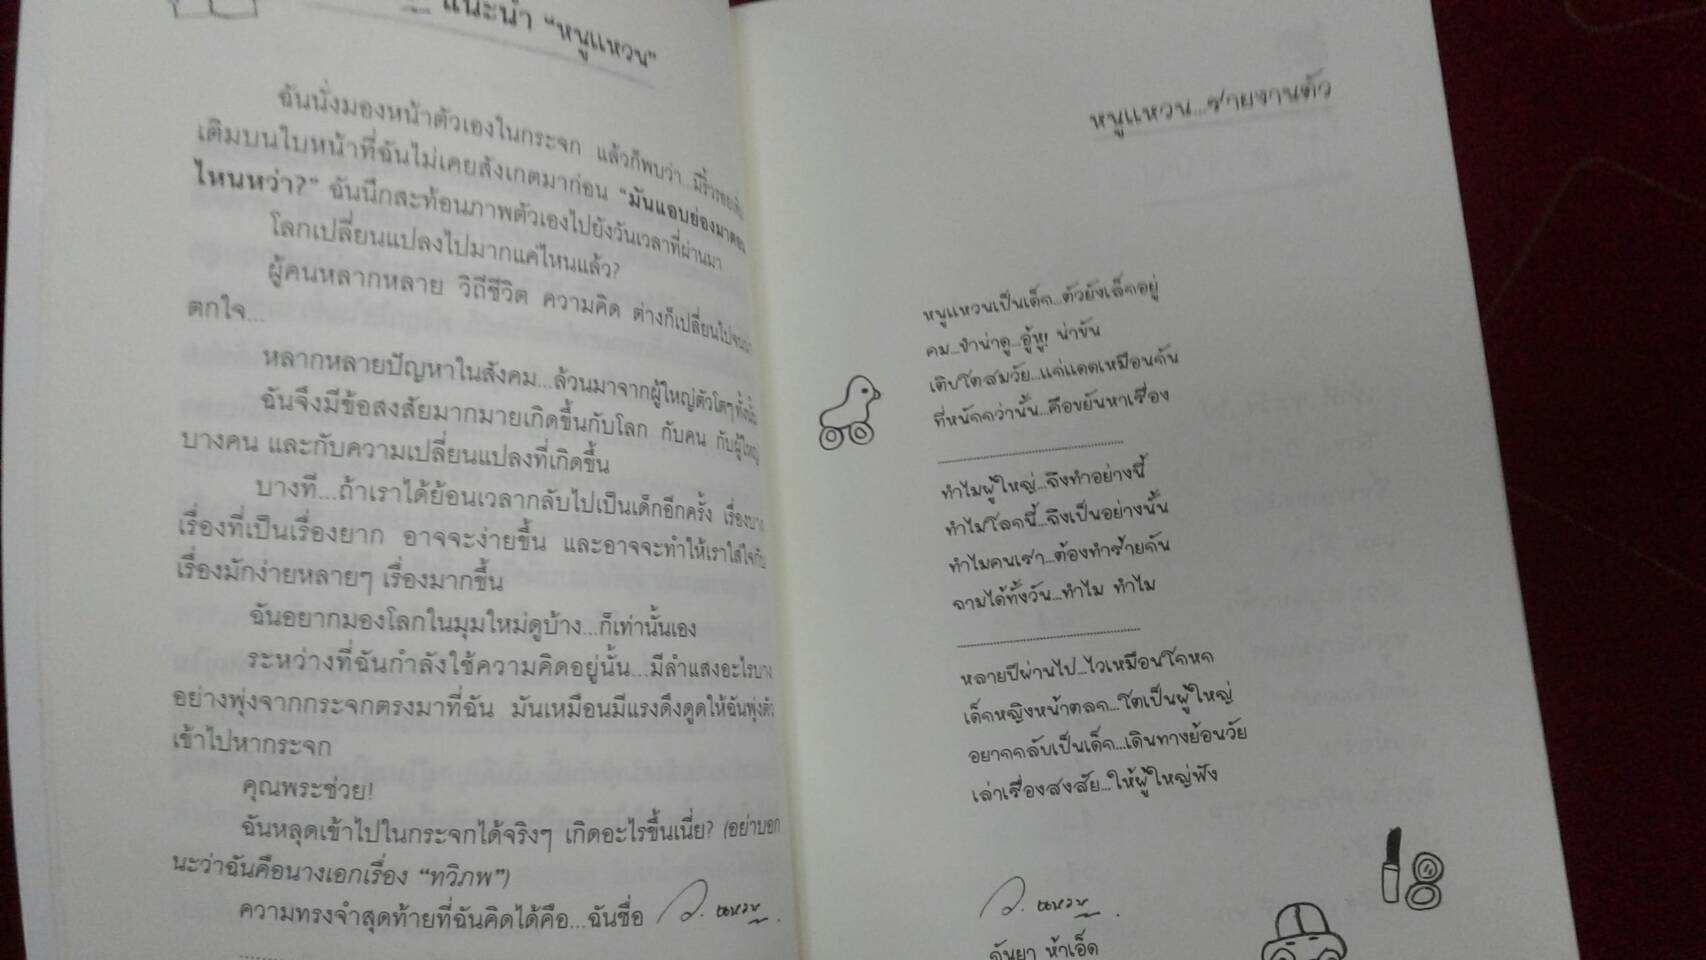 แนะนำ “หนูแหวน”
ฉันนั่งมองหน้าตัวเองในกระจก แล้วก็พบว่า...มีริ้วรอยเพิ่ม
เติมบนใบหน้าที่ฉันไม่เคยสังเกตมาก่อน “มันแอบย่องมาตอน
ไหนหว่า?” ฉันนึกสะท้อนภาพตัวเองไปยังวันเวลาที่ผ่านมา
โลกเปลี่ยนแปลงไปมากแค่ไหนแล้ว?
ผู้คนหลากหลาย วิถีชีวิต ความคิด ต่างก็เปลี่ยนไปจนน่า
ตกใจ...
หลากหลายปัญหาในสังคม...ล้วนมาจากผู้ใหญ่ตัวโตๆ ทั้งนั้น
ฉันจึงมีข้อสงสัยมากมายเกิดขึ้นกับโลก กับคน กับผู้ใหญ่
บางคน และกับความเปลี่ยนแปลงที่เกิดขึ้น
บางที...ถ้าเราได้ย้อนเวลากลับไปเป็นเด็กอีกครั้ง เรื่องบาง
เรื่องที่เป็นเรื่องยาก อาจจะง่ายขึ้น และอาจจะทำให้เราใส่ใจกับ
เรื่องมักง่ายหลายๆ เรื่องมากขึ้น
ฉันอยากมองโลกในมุมใหม่ดูบ้าง...ก็เท่านั้นเอง
ระหว่างที่ฉันกำลังใช้ความคิดอยู่นั้น...มีลำแสงอะไรบาง
อย่างพุ่งจากกระจกตรงมาที่ฉัน มันเหมือนมีแรงดึงดูดให้ฉันพุ่งตัว
เข้าไปหากระจก
คุณพระช่วย!
ฉันหลุดเข้าไปในกระจกได้จริงๆ เกิดอะไรขึ้นเนี่ย? (อย่าบอก
นะว่าฉันคือนางเอกเรื่อง “ทวิภพ”)
ความทรงจำสุดท้ายที่ฉันคิดได้คือ...ฉันชื่อ ว. แหวน
หนูแหวน...รายงานตัว
หนูแหวนเป็นเด็ก...ตัวยังเล็กอยู่
คม...ขำน่าดู...อู้หู! น่าขัน
เติบโตสมวัย...แก่แดดเหมือนกัน
ที่หนักกว่านั้น...คือขยันหาเรื่อง
ทำไมผู้ใหญ่...ถึงทำอย่างนี้
ทำไมโลกนี้...ถึงเป็นอย่างนั้น
ทำไมคนเรา...ต้องทำร้ายกัน
ถามได้ทั้งวัน...ทำไม ทำไม
หลายปีผ่านไป...ไวเหมือนโกหก
เด็กหญิงหน้าตลก...โตเป็นผู้ใหญ่
อยากกลับเป็นเด็ก...เดินทางย้อนวัย
เล่าเรื่องสงสัย...ให้ผู้ใหญ่ฟัง
ว. แหวน
กันยา ห้าเอ็ด